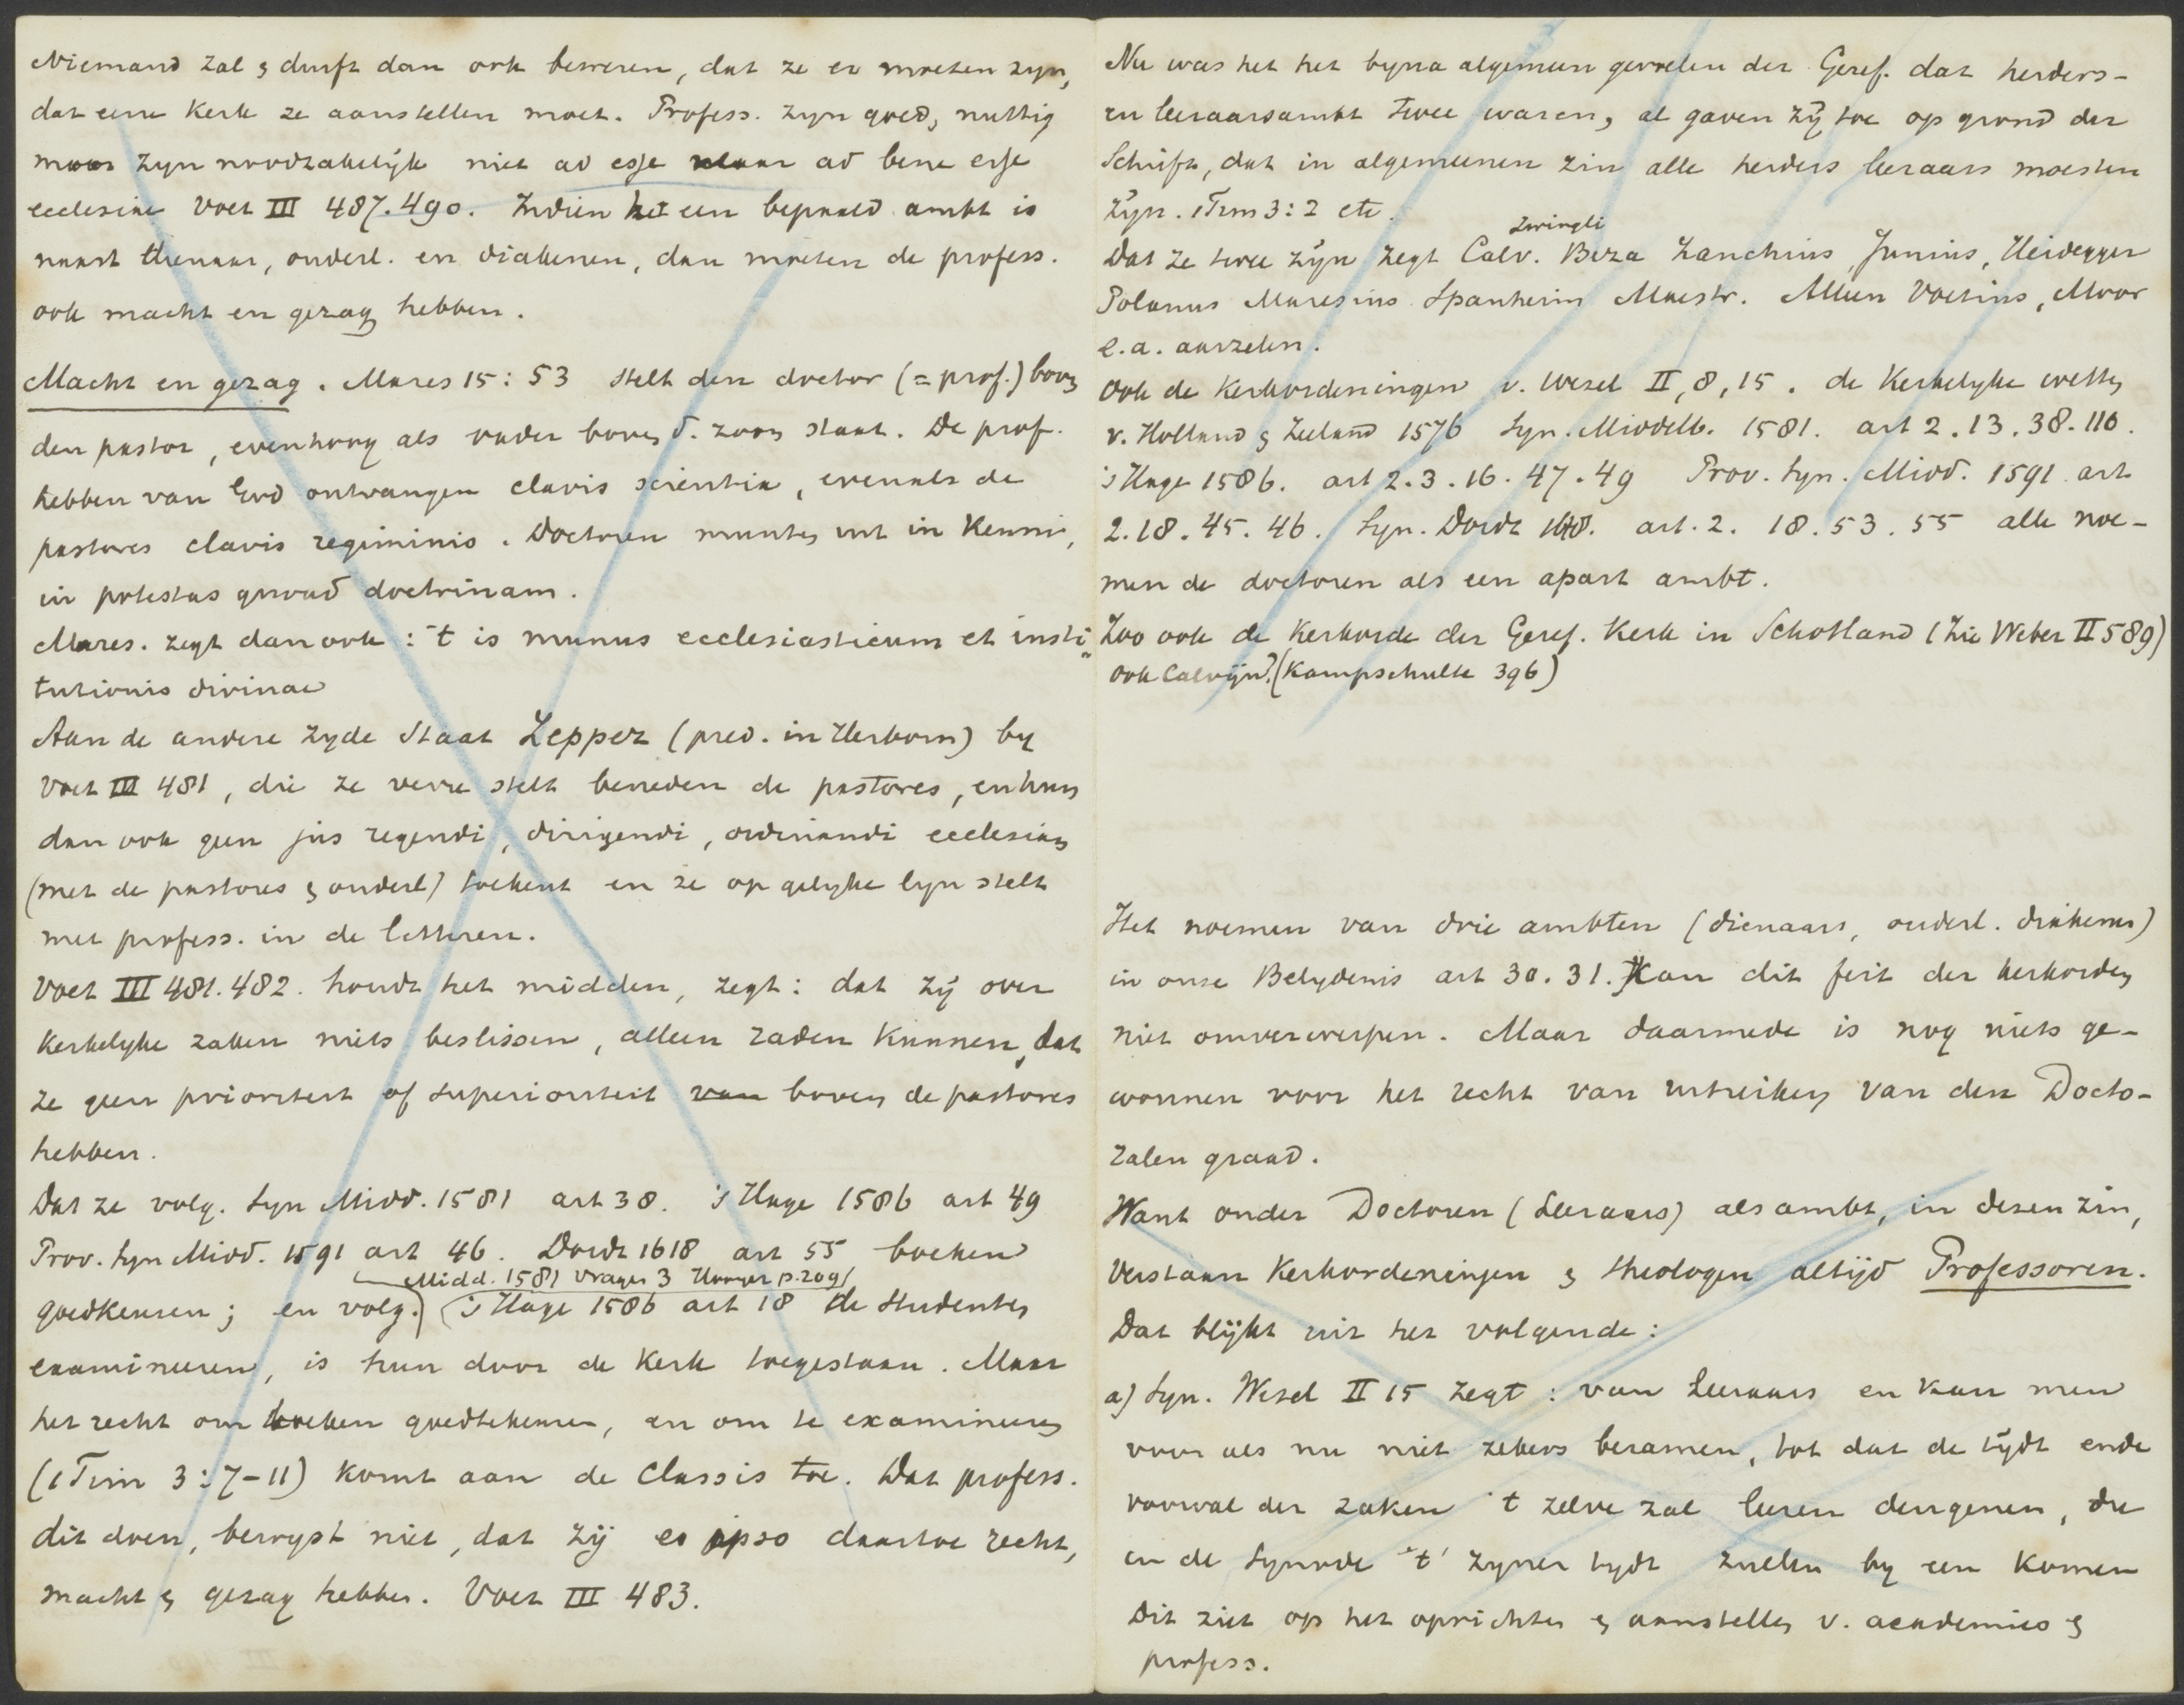 Niemand zal & durft dan ook beweren, dat ze er moeten zyn,
dat eene Kerk ze aanstellen moet. Profess. zyn goed, nuttig
maar zyn noodzakelijk niet ad esse maar ad bene esse
ecclesiae Voet III 487.490. Indien het een bepaald ambt is
naast dienaar, ouderl. en diakenen, dan moeten de profess.
ook macht en gezag hebben.
Macht en gezag. Mares 15:53 stelt den doctor (= prof.) boven
den pastor, evenhoog als vader boven d. zoon staat. De prof.
hebben van God ontvangen clavis scientiae, evenals de
pastores clavis regiminis. Doctoren munten uit in Kennis,
in potestas quoad doctrinam.
Mares. zegt dan ook: 't is munus ecclesiasticum et insti-
tutionis divinae
Aan de andere zyde staat Zepper (pred. in Herborn) by
Voet III 481, die ze verre stelt beneden de pastores, en hun
dan ook geen jus regendi, dirigendi, ordinandi ecclesiam
(met de pastores & ouderl) toekent en ze op gelyke lyn stelt
met profess. in de letteren.
Voet III 481.482. houdt het midden, zegt: dat zij over
Kerkelyke zaken niets beslissen, alleen raden kunnen, dat
ze geen prioriteit of superioriteit van boven de pastores
hebben.
Dat ze volg. Syn Midd. 1581 art 38. 's Hage 1586 art 49
Prov. Syn Midd. 1591 art 46. Dordt 1618 art 55 boeken
Midd. 1581 vragen 3 Hooyer p.209/
goedkeuren; en volg. 's Hage 1586 art 18 de studenten
examineeren, is hun door de Kerk toegestaan. Maar
het recht om boeken goedtekeuren, en om te examineeren
(1 Tim 3:7-11) Komt aan de Classis toe. Dat profess.
dit doen, bewyst niet, dat zij eo ipso daartoe recht,
macht & gezag hebben. Voet III 483.
Nu was het het byna algemeen gevoelen der Geref. dat herders-
en leeraarsambt twee waren, al gaven zij toe op grond der
Schrift, dat in algemeenen zin alle herders leeraars moesten
zijn. 1 Tim 3:2 etc.
Zwingli
Dat ze twee zijn zegt Calv. Beza Zanchius, Junius, Heidegger
Polanus Maresius Spanheim Maestr. Alleen Voetius, Moor
e.a. aarzelen.
Ook de Kerkordeningen v. Wesel II, 8, 15. de Kerkelyke wetten
v. Holland & Zeeland 1576 Syn. Middelb. 1581. art 2.13.38.110.
's Hage 1586. art 2.3.16.47.49 Prov. Syn. Midd. 1591 art
2.18.45.46. Syn. Dordt 1618. art. 2. 18.53.55 alle noe-
men de doctoren als een apart ambt.
Zoo ook de Kerkorde der Geref. Kerk in Schotland (zie Weber II 589)
ook Calvijn? (Kampschulte 396)
Het noemen van drie ambten (dienaars, ouderl. diakenen)
in onze Belydenis art 30.31. Kan dit feit der kerkorden
niet omverwerpen. Maar daarmede is nog niets ge-
wonnen voor het recht van uitreiken van den Docto-
ralen graad.
Want onder Doctoren (Leeraars) als ambt, in dezen zin,
verstaan Kerkordeningen & theologen altijd Professoren.
Dat blijkt uit het volgende:
a) Syn. Wesel II 15 zegt: van leeraars en kan men
voor als nu niet zekers beramen, tot dat de tijdt ende
voorval der zaken 't zelve zal leeren dengenen, die
in de Synode 't' zyner tydt zullen by een komen
Dit ziet op het oprichten & aanstellen v. academies &
profess.